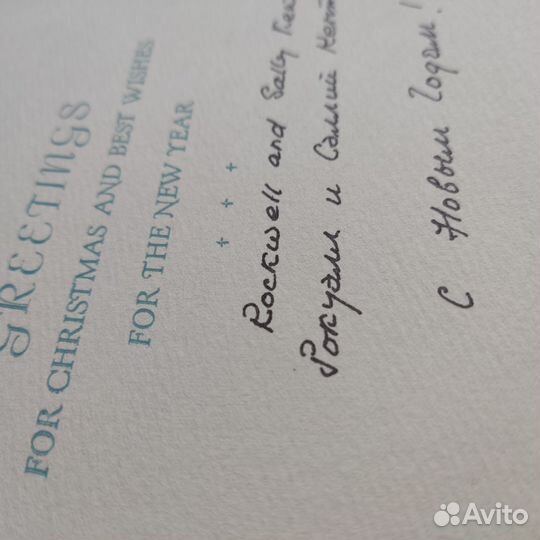 GREETINGS
FOR CHRISTMAS AND BEST WISHES
FOR THE NEW YEAR
+ + +
Rockwell and Sally
Рокуэлл и Саллии
С Новым Годом!
Avito